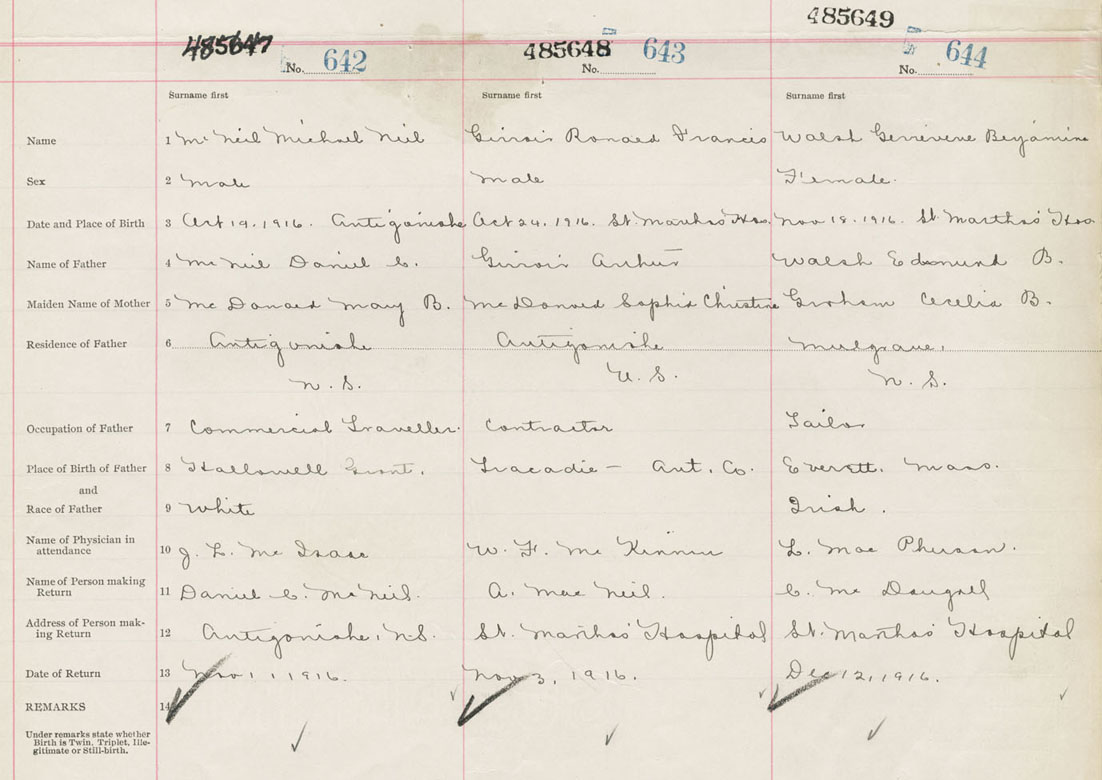 485649
485647 No. 642 485648 No. 643 No. 644
Surname first Surname first Surname first
Name 1 McNeil Michael Neil Girroir Ronald Francis Walsh Genevieve Benjamine
Sex 2 Male Male Female.
Date and Place of Birth 3 Oct 19, 1916. Antigonishe Oct 24, 1916. St. Martha's Hos. Nov 18, 1916. St Martha's Hos
Name of Father 4 McNeil Daniel C. Girroir Arthur Walsh Edmund B.
Maiden Name of Mother 5 McDonald Mary B. McDonald Sophia Christine Graham Cecelia B.
Residence of Father 6 Antigonishe Antigonishe Mulgrave,
N. S. N. S. N. S.
Occupation of Father 7 Commercial Traveller. Contractor Tailor
Place of Birth of Father 8 Hallowell Grant. Tracadie — Ant. Co. Everett. Mass.
and
Race of Father 9 White Irish.
Name of Physician in attendance 10 J. L. McIsaac W. F. McKinnon L. MacPherson.
Name of Person making Return 11 Daniel C. McNeil. A. MacNeil. C. McDougall
Address of Person mak-ing Return 12 Antigonishe, N.S. St. Martha's Hospital St. Martha's Hospital
Date of Return 13 Nov 1, 1916. Nov 3, 1916. Dec 12, 1916.
REMARKS 14
Under remarks state whether
Birth is Twin, Triplet, Ille-
gitimate or Still-birth.